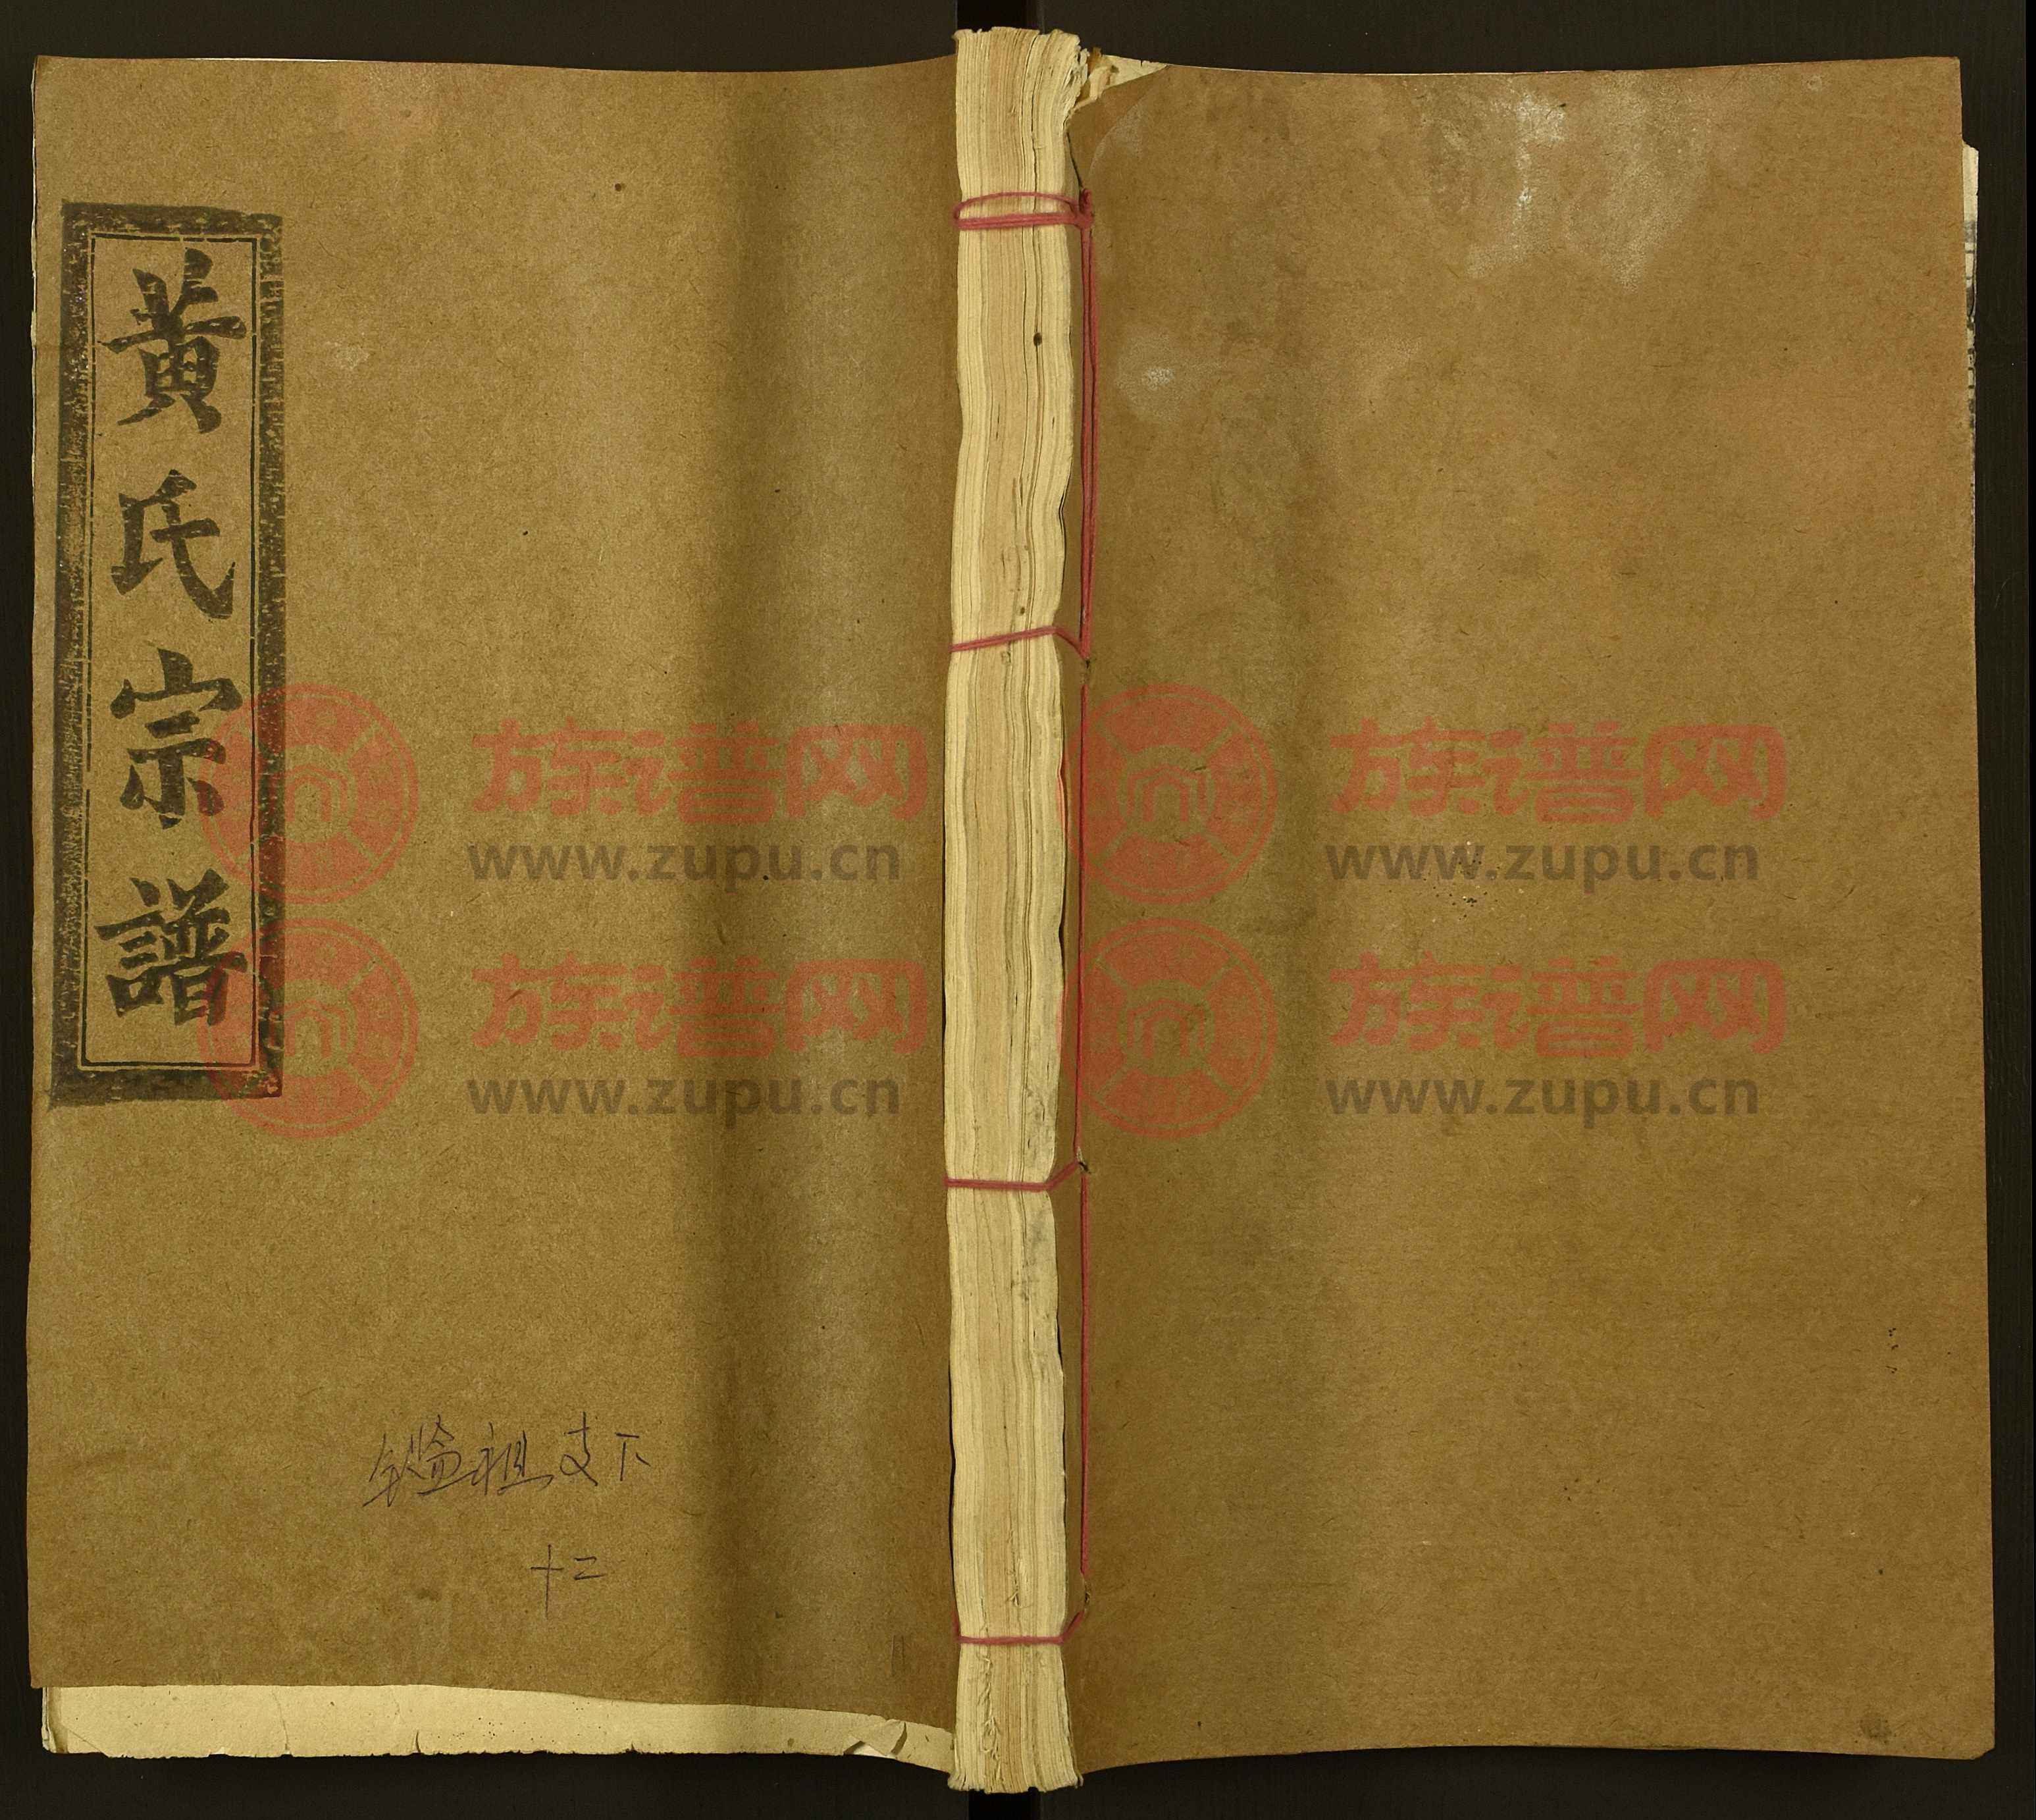 黄氏宗譜
鑑祖支下
十二
族谱网
www.zupu.cn
族谱网
www.zupu.cn
族谱网
www.zupu.cn
族谱网
www.zupu.cn